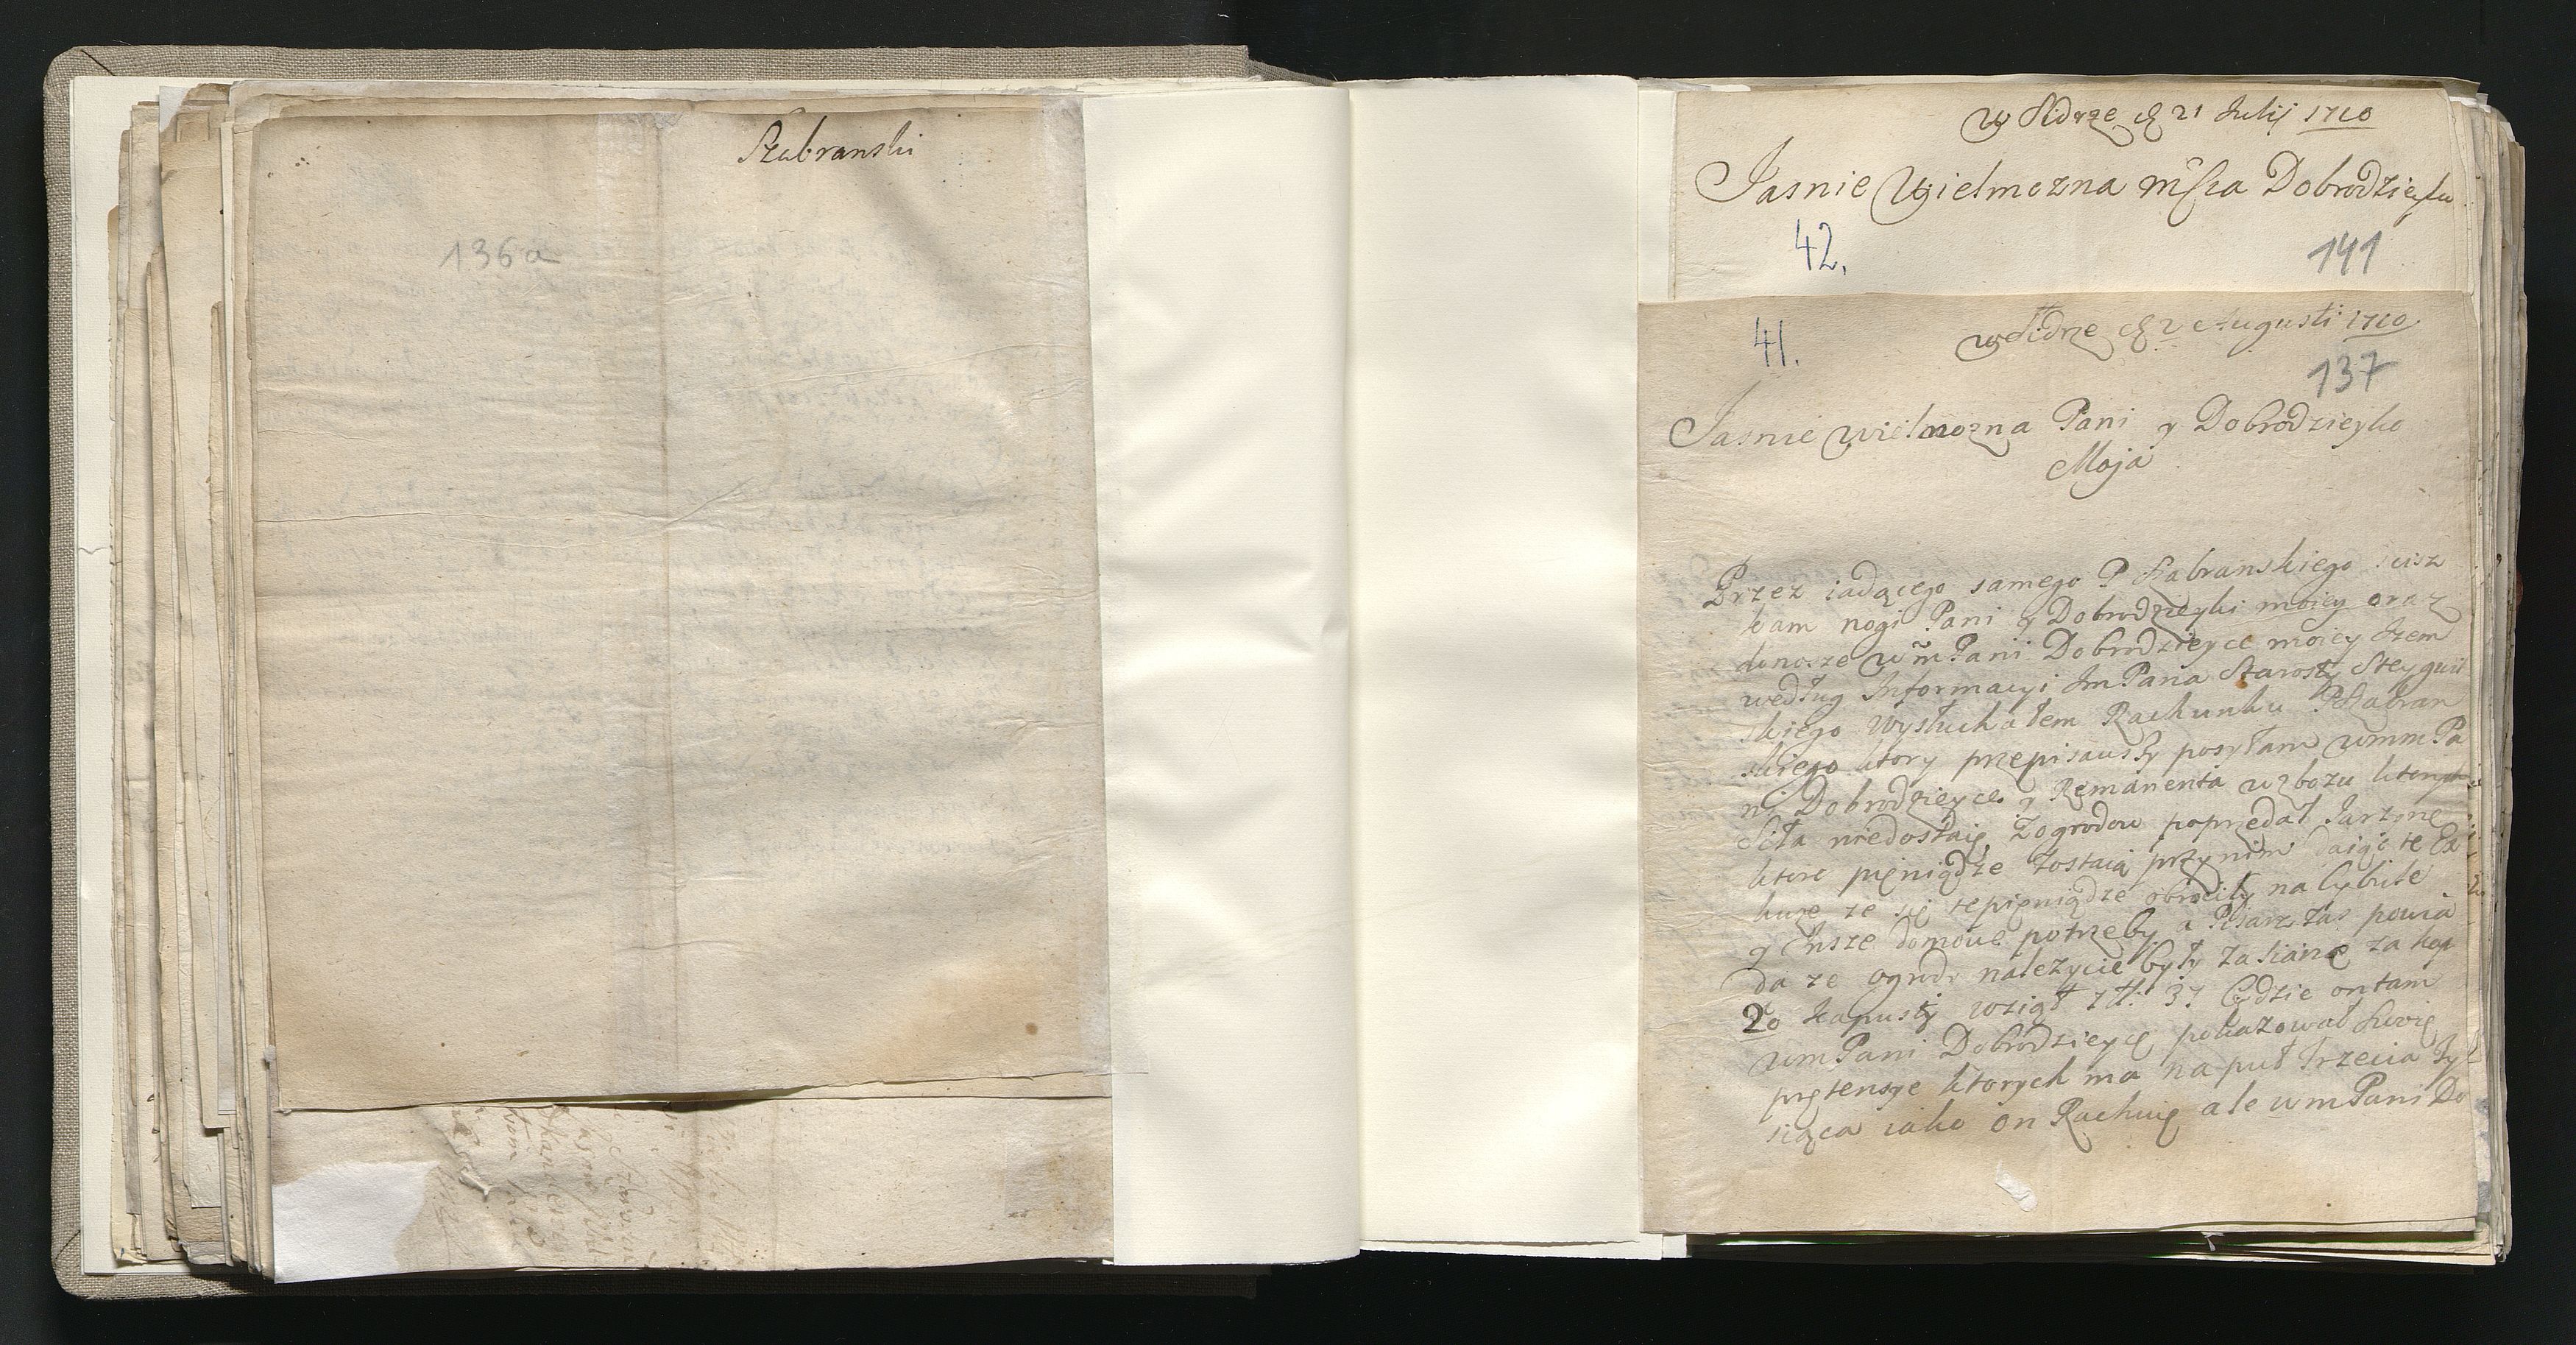 Szabranski
136a
w Sidrze d 21 Julij 1710
Jasnie Wielmozna mscia Dobrodzieyko
42.
141
41.
w Sidrze d 2 Augusti 1710
137
Jasnie wielmozna Pani y Dobrodzieyko
Moja
Przez iadącego samego P Szabranskiego scisz
kam nogi Pani y Dobrodzieyki moiey oraz
donosze wm Pani Dobrodzieyce moiey Izem
według Informacyi Im Pana Starosty Steygwil
skiego wysłuchałem Rachunku P Szabran
skiego ktory przepisawszy posyłam wmm Pa
ni Dobrodzieyce y Remanenta w zbozu ktorych
Siła niedostaię, Zogrodow poprzedał Jarzyne
ktore pięniądze zostaią przynim daiąc te Ex
kuzę ze się tepięniądze obrociły na Cybule
y Insze domowe potrzeby a Pisarz zas powia
da ze ogrody nalezycie były zasiane za kop
20 Kapusty wziął złł: 37 Gdzie ontam
wm Pani Dobrodzieycę pokazował Swoię
prętensye ktorych ma na puł trzecia ty
siąca iako on Rachuię ale wm Pani Do